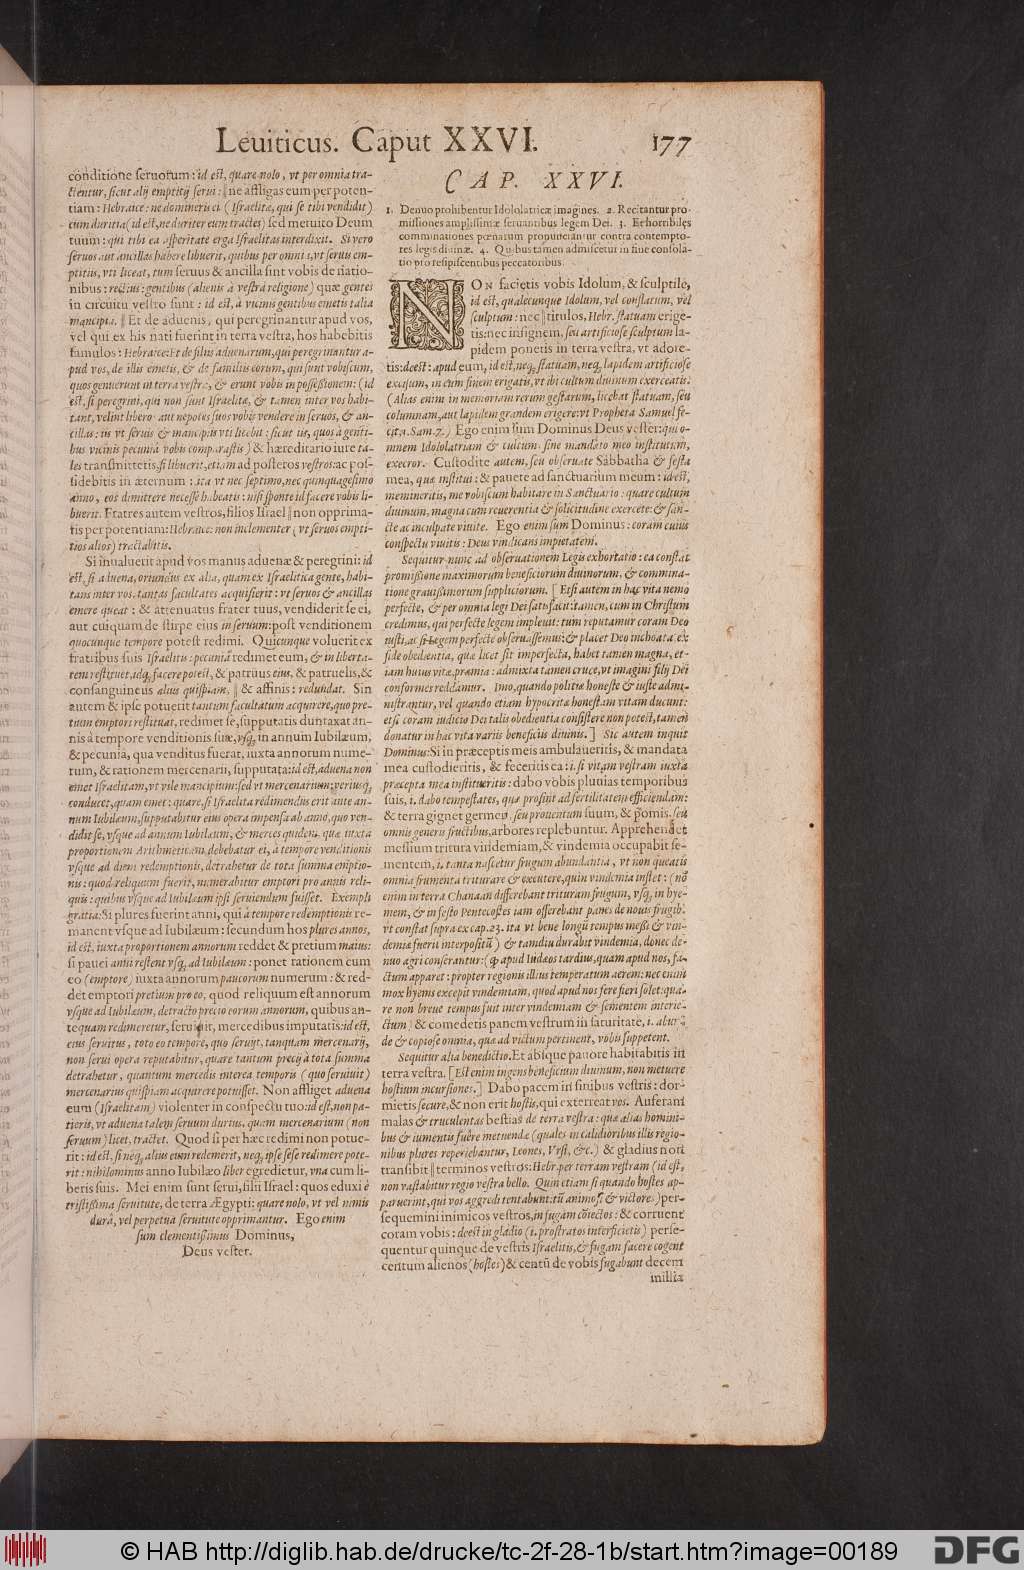 Leuiticus. Caput XXVI. 177
conditione seruorum: id est, quare nolo, vt per omnia tra-
ctentur, sicut alij emptitij serui: ‖ ne affligas eum per poten-
tiam: Hebraice: ne domineru ei (Israelitæ, qui se tibi vendidit)
cum duritia (id est, ne duriter eum tractes) sed metuito Deum
tuum: qui tibi ea asperitate erga Israelitas interdixit. Si vero
seruos aut ancillas habere libuerit, quibus per omnia, vt seruis em-
ptitiis, vti liceat, tum seruus & ancilla sint vobis de natio-
nibus: rectius: gentibus (alienis à vestra religione) quæ gentes
in circuitu vestro sunt: id est, à vicinis gentibus emetis talia
mancipia. ‖ Et de aduenis, qui peregrinantur apud vos,
vel qui ex his nati fuerint in terra vestra, hos habebitis
famulos: Hebraice: Et de filiis aduenarum, qui peregrinantur a-
pud vos, de illis emetis, & de familiis eorum, qui sunt vobiscum,
quos genuerunt in terra vestra, & erunt vobis in possessionem: (id
est, si peregrini, qui non sunt Israelitæ, & tamen inter vos habi-
tant, velint libero aut nepotes suos vobis vendere in seruos, & an-
cillas: iis vt seruis & mancipiis vti licebit: sicut iis, quos à genti-
bus vicinis pecunia vobis comparastis) & hæreditario iure ta-
les transmittetis, si libuerit, etiam ad posteros vestros: ac pos-
sidebitis in æternum: ita vt nec septimo, nec quinquagesimo
anno, eos dimittere necesse habeatis: nisi sponte id facere vobis li-
buerit. Fratres autem vestros, filios Israel ‖ non opprima-
tis per potentiam: Hebraice: non inclementer (vt seruos empti-
tios alios) tractabitis.
Si inualuerit apud vos manus aduenæ & peregrini: id
est, si aduena, oriundus ex alia, quam ex Israelitica gente, habi-
tans inter vos, tantas facultates acquisierit: vt seruos & ancillas
emere queat: & attenuatus frater tuus, vendiderit se ei,
aut cuiquam de stirpe eius in seruum: post venditionem
quocunque tempore potest redimi. Quicunque voluerit ex
fratribus suis Israelitis: pecuniâ redimet eum, & in liberta-
tem restituet, idq́; facere potest, & patruus eius, & patruelis, &
consanguineus alius quispiam, ‖ & affinis: redundat. Sin
autem & ipse potuerit tantum facultatum acquirere, quo pre-
tium emptori restituat, redimet se, supputatis duntaxat an-
nis à tempore venditionis suæ, vsq; in annum Iubilæum,
& pecunia, qua venditus fuerat, iuxta annorum nume-
rum, & rationem mercenarii, supputata: id est, aduena non
emet Israelitam, vt vile mancipium: sed vt mercenarium; veriusq;
conducet, quam emet: quare, si Israelita redimendus erit ante an-
num Iubilæum, supputabitur eius opera impensa ab anno, quo ven-
didit se, vsque ad annum Iubilæum, & merces quidem, quæ iuxta
proportionem Arithmeticam, debebatur ei, à tempore venditionis
vsque ad diem redemptionis, detrahetur de tota summa emptio-
nis: quod reliquum fuerit, numerabitur emptori pro annis reli-
quis: quibus vsque ad Iubilæum ipsi seruiendum fuisset. Exempli
gratia: Si plures fuerint anni, qui à tempore redemptionis re-
manent vsque ad Iubilæum: secundum hos plures annos,
id est, iuxta proportionem annorum reddet & pretium maius:
si pauci anni restent vsq; ad Iubilæum: ponet rationem cum
eo (emptore) iuxta annorum paucorum numerum: & red-
det emptori pretium pro eo, quod reliquum est annorum
vsque ad Iubilæum, detracto precio eorum annorum, quibus an-
te quam redimeretur, seruiuit, mercedibus imputatis: id est,
eius seruitus, toto eo tempore, quo seruijt, tanquam mercenarij,
non serui opera reputabitur, quare tantum precij à tota summa
detrahetur, quantum mercedis interea temporis (quo seruiuit)
mercenarius quispiam acquirere potuisset. Non affliget aduena
eum (Israelitam) violenter in conspectu tuo: id est, non pa-
tieris, vt aduena talem seruum durius, quam mercenarium (non
seruum) licet, tractet. Quod si per hæc redimi non potue-
rit: id est, si neq; alius eum redemerit, neq; ipse sese redimere pote-
rit: nihilominus anno Iubilæo liber egredietur, vna cum li-
beris suis. Mei enim sunt serui, filii Israel: quos eduxi è
tristissima seruitute, de terra Ægypti: quare nolo, vt vel nimis
dura, vel perpetua seruitute opprimantur. Ego enim
sum clementissimus Dominus,
Deus vester.
CAP. XXVI.
1. Denuo prohibentur Idololatricæ imagines. 2. Recitantur pro-
missiones amplissimæ seruantibus legem Dei. 3. Et horribiles
comminationes pœnarum pronunciantur contra contempto-
res legis diuinæ. 4. Quibus tamen admiscetur in fine consola-
tio pro resipiscentibus peccatoribus.
NON facietis vobis Idolum, & sculptile,
id est, qualecunque Idolum, vel conflatum, vel
sculptum: nec ‖ titulos, Hebr. statuam erige-
tis: nec insignem, seu artificiose sculptum la-
pidem ponetis in terra vestra, vt adore-
tis: deest: apud eum, id est, neq; statuam, neq; lapidem artificiose
excisum, in eum finem erigatis, vt ibi cultum diuinum exerceatis:
(Alias enim in memoriam rerum gestarum, licebat statuam, seu
columnam, aut lapidem grandem erigere: vt Propheta Samuel fe-
cit, 1. Sam. 7.) Ego enim sum Dominus Deus vester: qui o-
mnem Idololatriam & cultum, sine mandato meo institutum,
execror. Custodite autem, seu obseruate Sabbatha & festa
mea, quæ institui: & pauete ad sanctuarium meum: id est,
memineritis, me vobiscum habitare in Sanctuario: quare cultum
diuinum, magna cum reuerentia & solicitudine exercete: & san-
cte ac inculpate viuite. Ego enim sum Dominus: coram cuius
conspectu viuitis: Deus vindicans impietatem.
Sequitur nunc ad obseruationem Legis exhortatio: ea constat
promissione maximorum beneficiorum diuinorum, & commina-
tione grauissimorum suppliciorum. [Etsi autem in hac vita nemo
perfecte, & per omnia legi Dei satisfacit: tamen, cum in Christum
credimus, qui perfecte legem impleuit: tum reputamur coram Deo
iusti, ac si Legem perfecte obseruassemus: & placet Deo inchoata ex
fide obedientia, quæ licet sit imperfecta, habet tamen magna, et-
iam huius vitæ, præmia: admixta tamen cruce, vt imagini filij Dei
conformes reddamur. Imo, quando politiæ honeste & iuste admi-
nistrantur, vel quando etiam hypocritæ honestam vitam ducunt:
etsi coram iudicio Dei talis obedientia consistere non potest, tamen
donatur in hac vita variis beneficiis diuinis.] Sic autem inquit
Dominus: Si in præceptis meis ambulaueritis, & mandata
mea custodieritis, & feceritis ea: i. si vitam vestram iuxta
præcepta mea institueritis: dabo vobis pluuias temporibus
suis, i. dabo tempestates, quæ prosint ad fertilitatem efficiendam:
& terra gignet germen, seu prouentum suum, & pomis, seu
omnis generis fructibus, arbores replebuntur. Apprehendet
messium tritura vindemiam, & vindemia occupabit se-
mentem, i. tanta nascetur frugum abundantia, vt non queatis
omnia frumenta triturare & excutere, quin vindemia instet: (nō
enim in terra Chanaan differebant trituram frugum, vsq; in hye-
mem, & in festo Pentecostes iam offerebant panes de nouis frugib:
vt constat supra ex cap. 23. ita vt bene longū tempus messi & vin-
demiæ fuerit interpositū) & tamdiu durabit vindemia, donec de-
nuo agri conserantur: (ꝙ apud Iudæos tardius, quam apud nos, fa-
ctum apparet: propter regionis illius temperatum aerem: nec enim
mox hyems excepit vindemiam, quod apud nos fere fieri solet: qua-
re non breue tempus fuit inter vindemiam & sementem interie-
ctum) & comedetis panem vestrum in saturitate, i. abun-
de & copiose omnia, quæ ad victum pertinent, vobis suppetent.
Sequitur alia benedictio. Et absque pauore habitabitis in
terra vestra. [Est enim ingens beneficium diuinum, non metuere
hostium incursiones.] Dabo pacem in finibus vestris: dor-
mietis secure, & non erit hostis, qui exterreat vos. Auferam
malas & truculentas bestias de terra vestra: quæ alias homini-
bus & iumentis fuere metuendæ (quales in calidioribus illis regio-
nibus plures reperiebantur, Leones, Vrsi, &c.) & gladius non
transibit ‖ terminos vestros: Hebr. per terram vestram (id est,
non vastabitur regio vestra bello. Quin etiam si quando hostes ap-
paruerint, qui vos aggredi tentabunt: tū animosi & victores) per-
sequemini inimicos vestros, in fugam cōiectos: & corruent
coram vobis: deest in gladio (i. prostratos interficietis) perse-
quentur quinque de vestris Israelitis, & fugam facere cogent
centum alienos (hostes) & centū de vobis fugabunt decem
millia
© HAB http://diglib.hab.de/drucke/tc-2f-28-1b/start.htm?image=00189
DFG